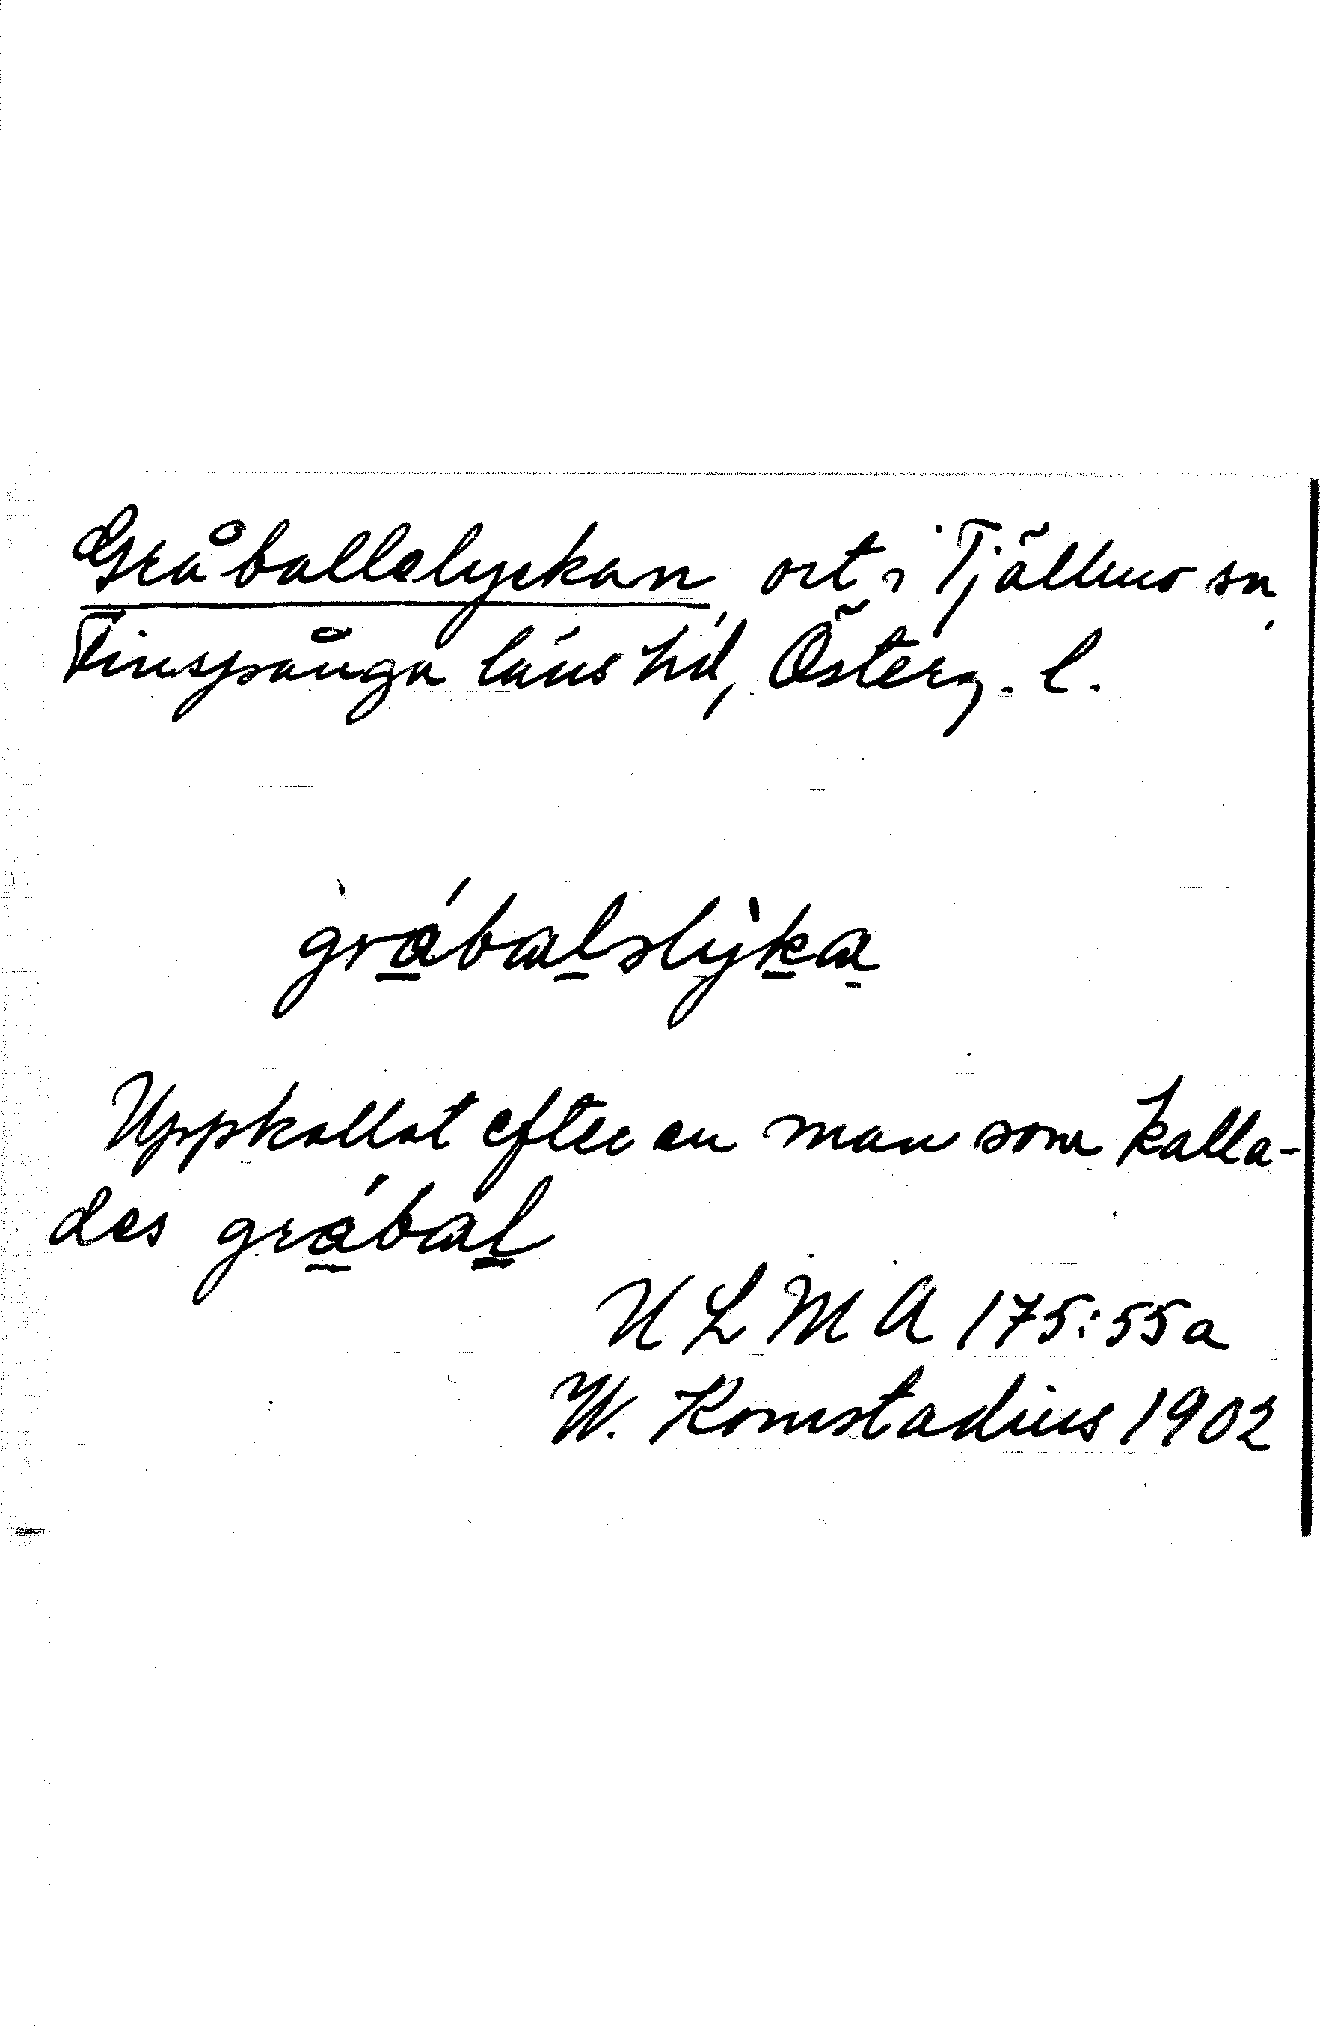 Gråballelyckan, ort i Tjällmo sn,
Finspånga läns hd, Österg. l.
gråbalslyka
Uppkallat efter en man som kalla-
des gråbal
ULMA 175:55a
W. Komstadius 1902